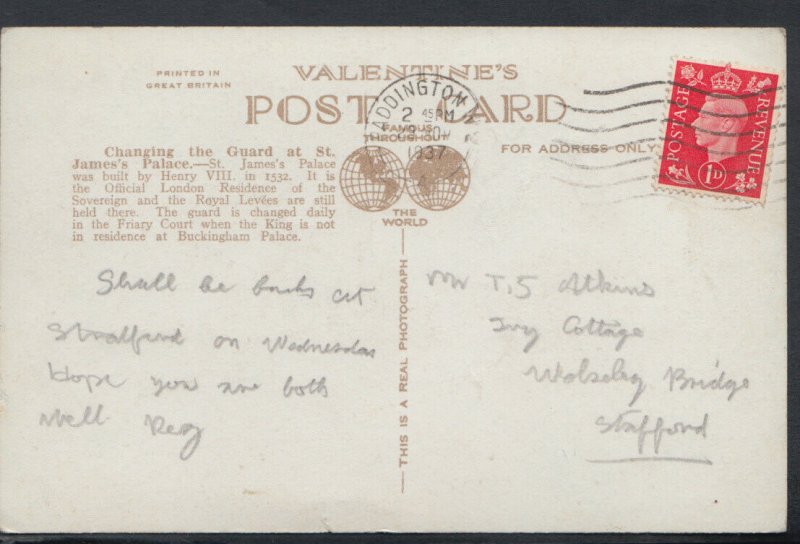 PRINTED IN
GREAT BRITAIN
VALENTINE'S
POST CARD
FAMOUS
THROUGHOUT
THE
WORLD
FOR ADDRESS ONLY
PADDINGTON
2 45 PM
1937
POSTAGE
REVENUE
1D
Changing the Guard at St.
James's Palace.—St. James's Palace
was built by Henry VIII. in 1532. It is
the Official London Residence of the
Sovereign and the Royal Levées are still
held there. The guard is changed daily
in the Friary Court when the King is not
in residence at Buckingham Palace.
THIS IS A REAL PHOTOGRAPH
Shall be back at
Stratford on Wednesday
Hope you are both
well Reg
Mr T. S Atkins
Ivy Cottage
Wolseley Bridge
Stafford